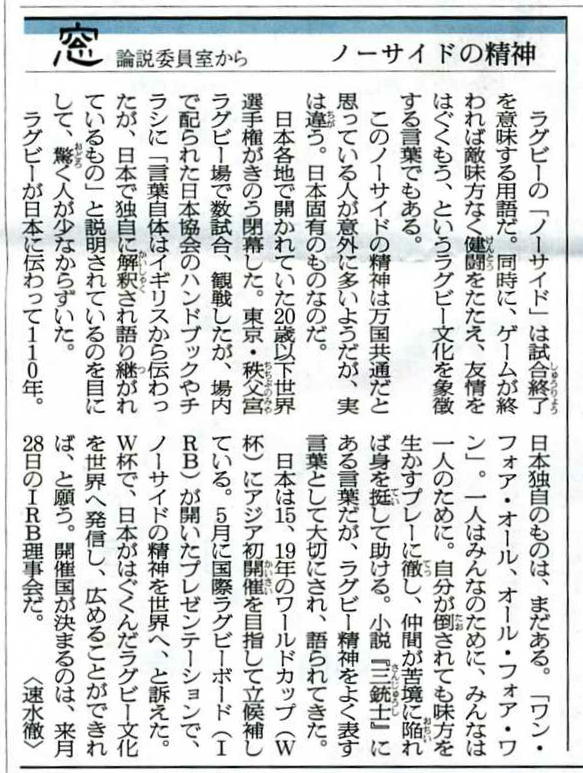 窓 論説委員室から ノーサイドの精神
ラグビーの「ノーサイド」は試合終了
を意味する用語だ。同時に、ゲームが終
われば敵味方なく健闘をたたえ、友情を
はぐくもう、というラグビー文化を象徴
する言葉でもある。
このノーサイドの精神は万国共通だと
思っている人が意外に多いようだが、実
は違う。日本固有のものなのだ。
日本各地で開かれていた20歳以下世界
選手権がきのう閉幕した。東京・秩父宮
ラグビー場で数試合、観戦したが、場内
で配られた日本協会のハンドブックやチ
ラシに「言葉自体はイギリスから伝わっ
たが、日本で独自に解釈され語り継がれ
ているもの」と説明されているのを目に
して、驚く人が少なからずいた。
ラグビーが日本に伝わって110年。
日本独自のものは、まだある。「ワン・
フォア・オール、オール・フォア・ワ
ン」。一人はみんなのために、みんなは
一人のために。自分が倒されても味方を
生かすプレーに徹し、仲間が苦境に陥れ
ば身を挺して助ける。小説『三銃士』に
ある言葉だが、ラグビー精神をよく表す
言葉として大切にされ、語られてきた。
日本は15、19年のワールドカップ（W
杯）にアジア初開催を目指して立候補し
ている。5月に国際ラグビーボード（I
RB）が開いたプレゼンテーションで、
ノーサイドの精神を世界へ、と訴えた。
W杯で、日本がはぐくんだラグビー文化
を世界へ発信し、広めることができれ
ば、と願う。開催国が決まるのは、来月
28日のIRB理事会だ。〈速水徹〉